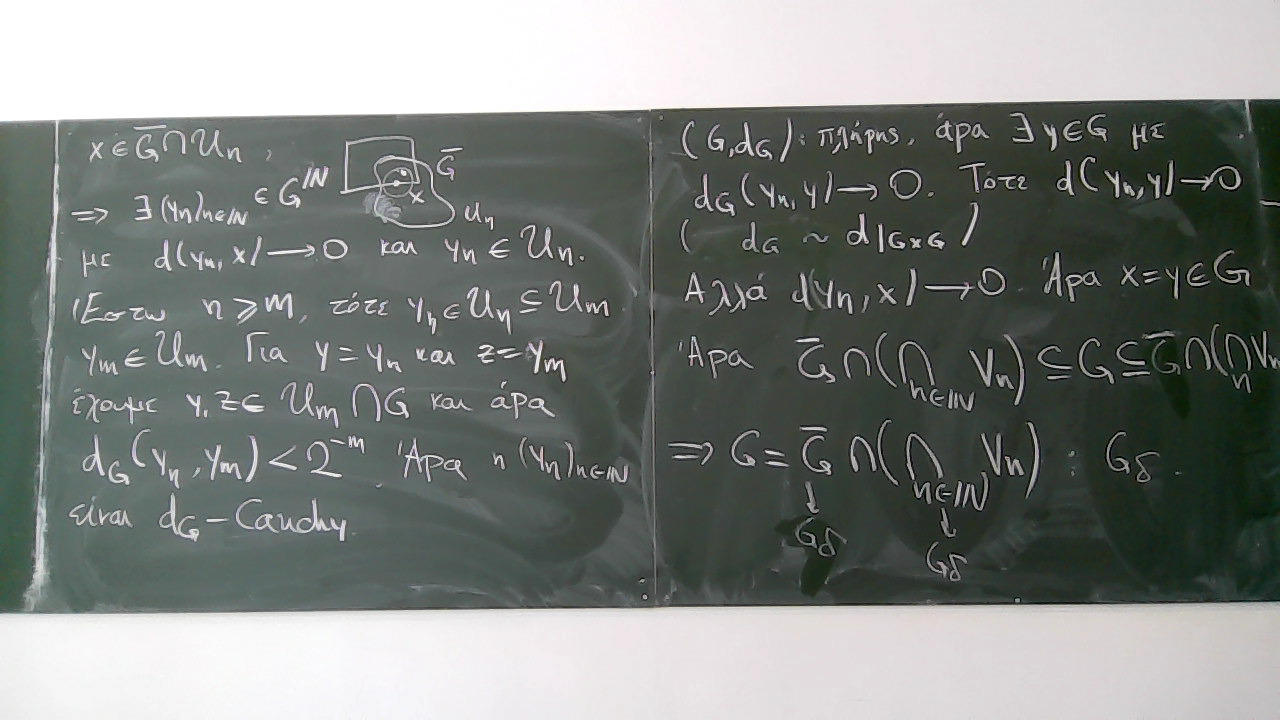 x ∈ G̅ ∩ Uₙ ,
G̅
⇒ ∃ (yₙ)ₙ∈ℕ ∈ G^ℕ
x
Uₙ
με d(yₙ, x) → 0 και yₙ ∈ Uₙ.
Έστω n ≥ m, τότε yₙ ∈ Uₙ ⊆ Uₘ
yₘ ∈ Uₘ. Για y = yₙ και z = yₘ
έχουμε y, z ∈ Uₘ ∩ G και άρα
d_G(yₙ, yₘ) < 2^{-m}. Άρα η (yₙ)ₙ∈ℕ
είναι d_G - Cauchy
(G, d_G): πλήρης, άρα ∃ y ∈ G με
d_G(yₙ, y) → 0. Τότε d(yₙ, y) → 0
( d_G ~ d|_{G×G} )
Αλλά d(yₙ, x) → 0. Άρα x = y ∈ G
Άρα G̅ ∩ (⋂_{n∈ℕ} Vₙ) ⊆ G ⊆ G̅ ∩ (⋂_n Vₙ
⇒ G = G̅ ∩ (⋂_{n∈ℕ} Vₙ) : G_δ.
↓ ↓
G_δ G_δ